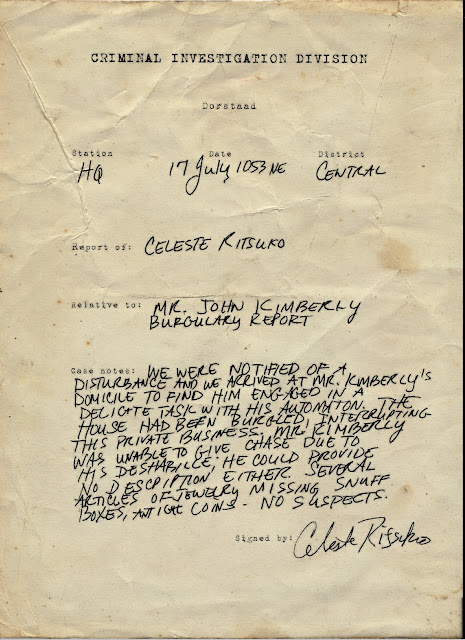 CRIMINAL INVESTIGATION DIVISION
Dorstaad
Station Date District
HQ 17 July 1053 NE CENTRAL
Report of: CELESTE RITSUKO
Relative to: MR. JOHN KIMBERLY
BURGULARY REPORT
Case notes: WE WERE NOTIFIED OF A
DISTURBANCE AND WE ARRIVED AT MR. KIMBERLY'S
DOMICILE TO FIND HIM ENGAGED IN A
DELICATE TASK WITH HIS AUTOMATON. THE
HOUSE HAD BEEN BURGLED, INTERRUPTING
THIS PRIVATE BUSINESS. MR. KIMBERLY
WAS UNABLE TO GIVE CHASE DUE TO
HIS DESHABILLE. HE COULD PROVIDE
NO DESCRIPTION EITHER. SEVERAL
ARTICLES OF JEWELRY MISSING SNUFF
BOXES, ANTIQUE COINS - NO SUSPECTS.
Signed by: Celeste Ritsuko